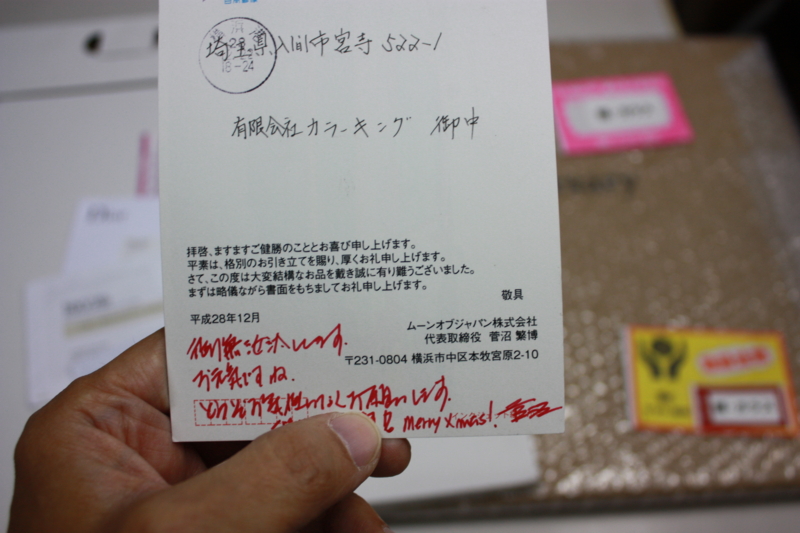 日本郵便
18-24
埼玉県入間市宮寺522-1
有限会社カラーキング 御中
拝啓、ますますご健勝のこととお喜び申し上げます。
平素は、格別のお引き立てを賜り、厚くお礼申し上げます。
さて、この度は大変結構なお品を戴き誠に有り難うございました。
まずは略儀ながら書面をもちましてお礼申し上げます。
敬具
平成28年12月
ムーンオブジャパン株式会社
代表取締役 菅沼 繁博
〒231-0804 横浜市中区本牧宮原2-10
御無沙汰しています。
お元気ですね。
お願いします。
Merry Xmas! 菅沼